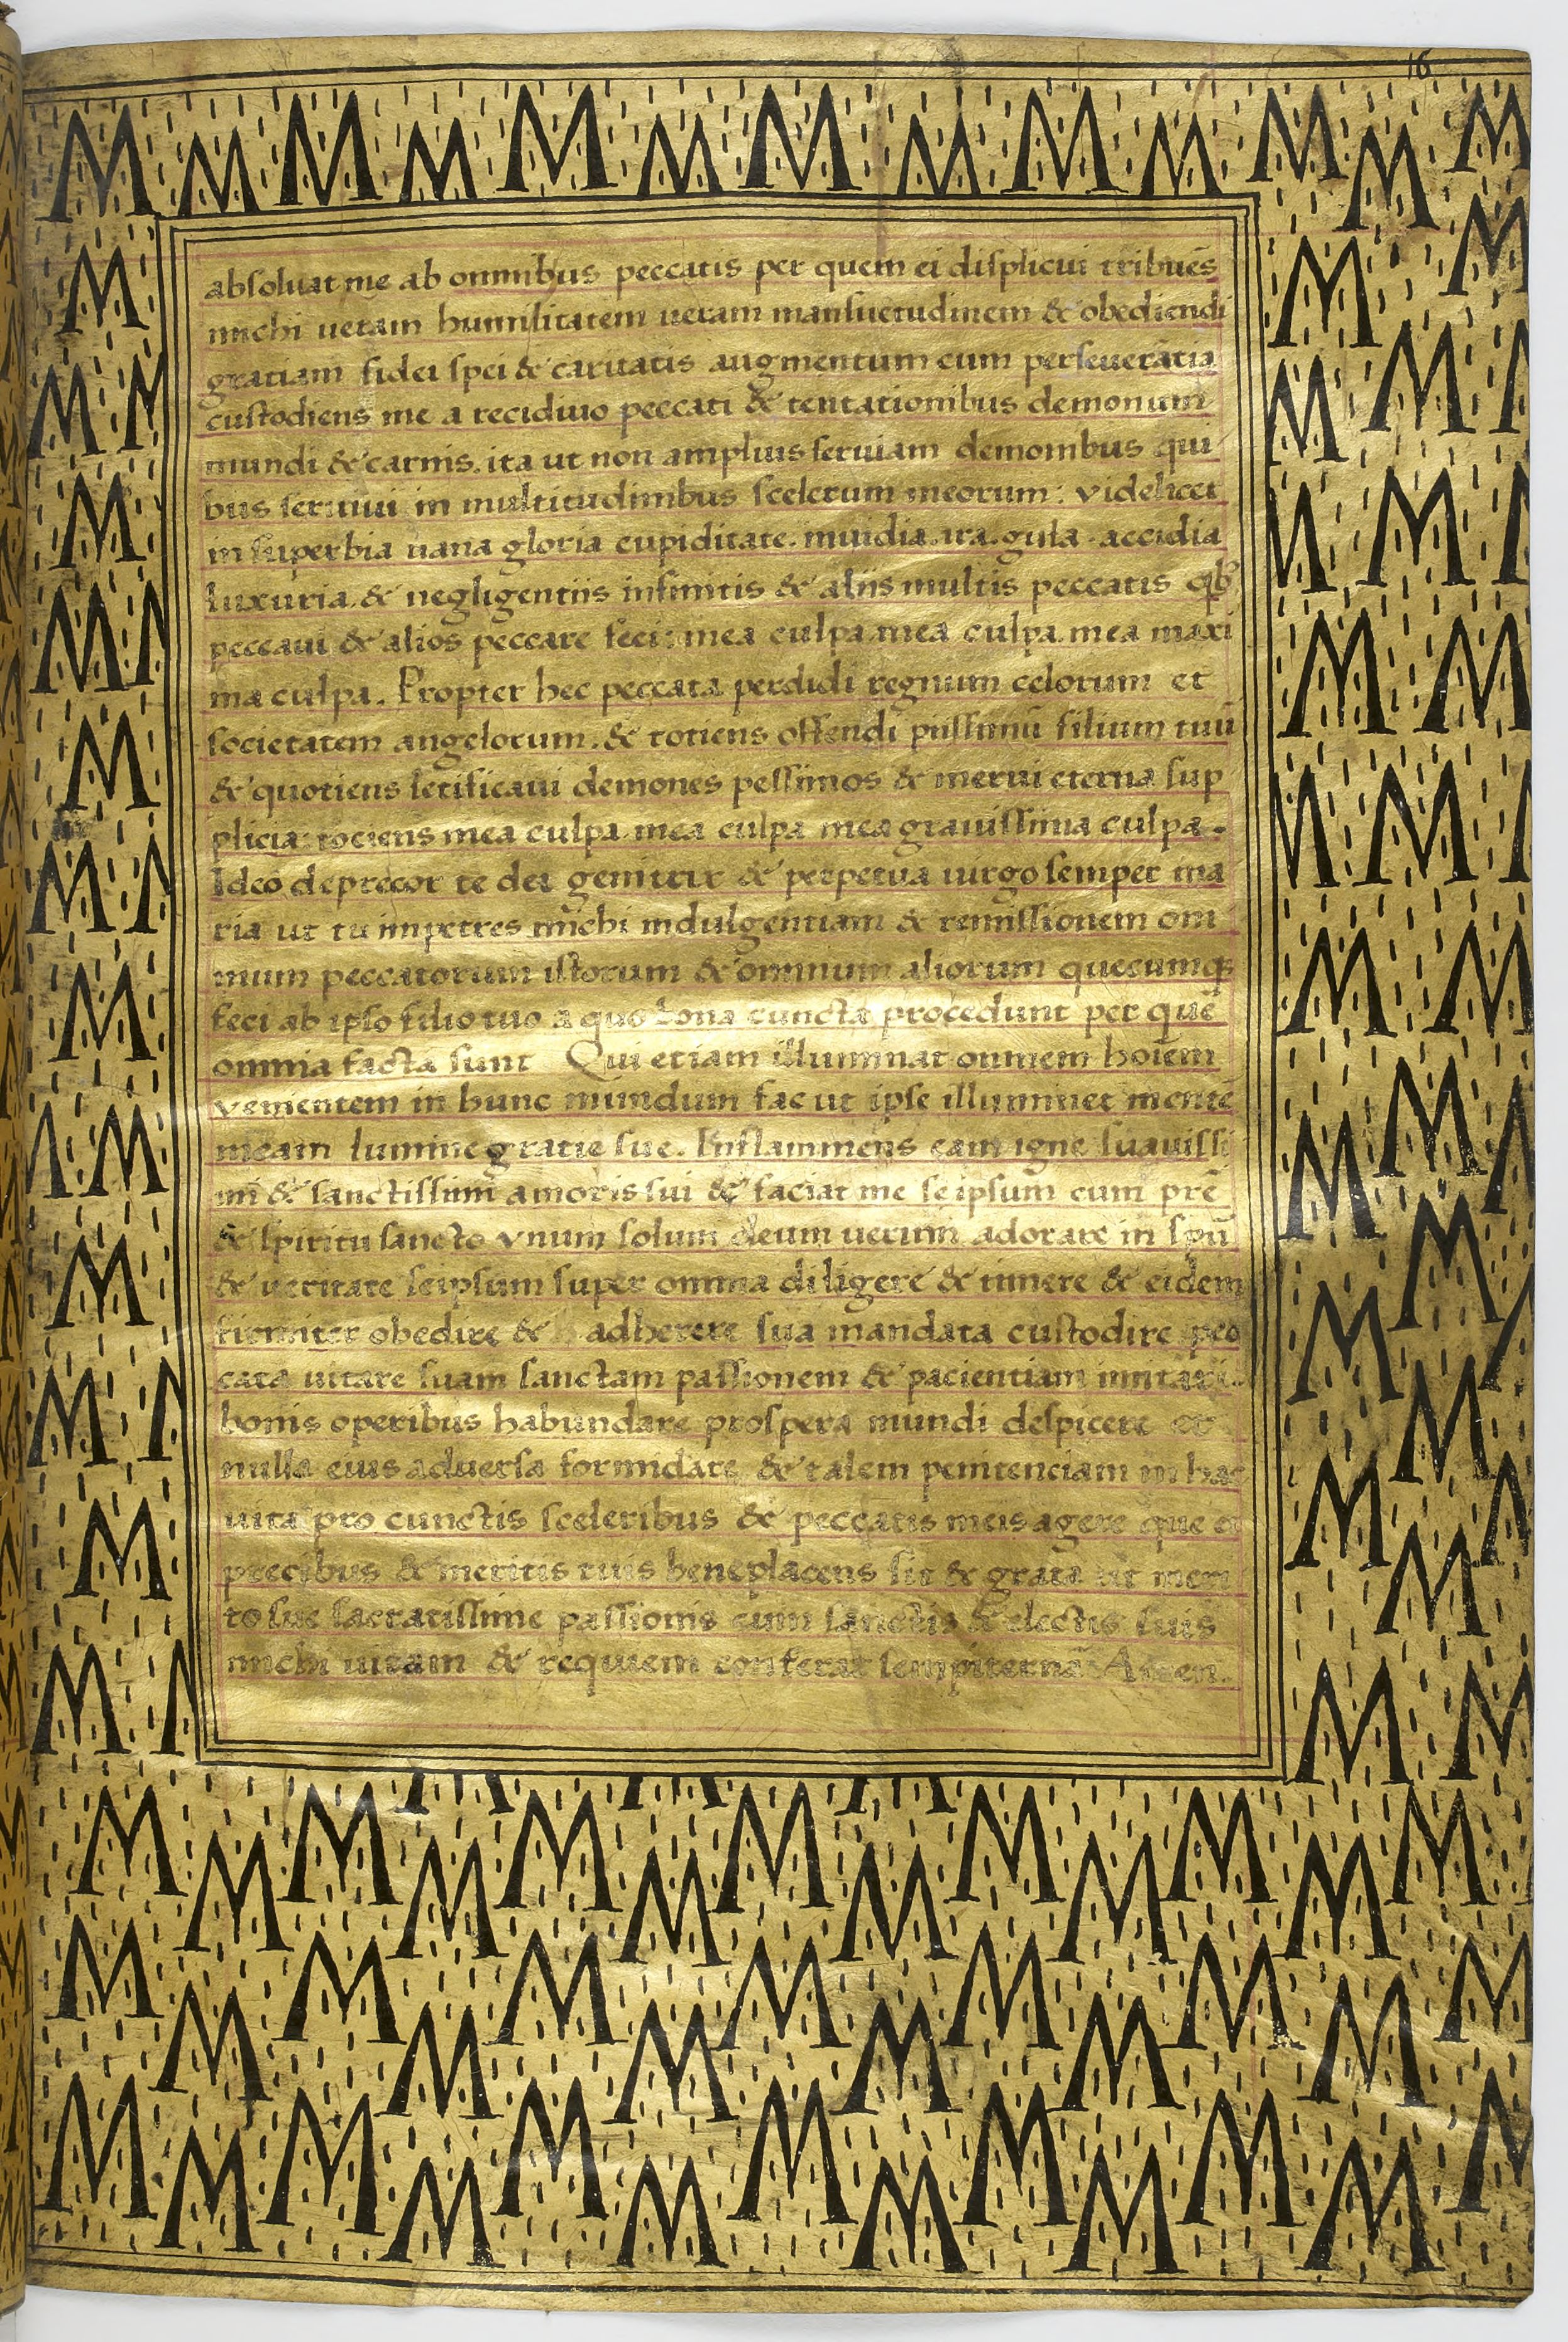 16
absoluat me ab omnibus peccatis per quem ei displicui tribuēs
michi ueram humilitatem ueram mansuetudinem & obediendi
gratiam fidei spei & caritatis augmentum cum perseuerātia
custodiens me a recidiuo peccati & tentationibus demonum
mundi & carnis. ita ut non amplius seruiam demonibus qui
bus seruiui in multitudinibus scelerum meorum: videlicet
in superbia uana gloria cupiditate. inuidia. ira. gula. accidia
luxuria. & negligentiis infinitis & aliis multis peccatis qb᷒
peccaui & alios peccare feci: mea culpa. mea culpa. mea maxi
ma culpa. Propter hec peccata perdidi regnum celorum et
societatem angelorum. & totiens offendi piissimū filium tuū
& quotiens letificaui demones pessimos & merui eterna sup
plicia: tociens mea culpa mea culpa mea grauissima culpa.
Ideo deprecor te dei genitrix & perpetua uirgo semper ma
ria ut tu impetres michi indulgentiam & remissionem om
nium peccatorum istorum & omnium aliorum quecumqꝫ
feci ab ipso filio tuo a quo bona cuncta procedunt per quē
omnia facta sunt Qui etiam illuminat omnem hoiēm
venientem in hunc mundum fac ut ipse illuminet mentē
meam lumine gratie sue. Inflammens eam igne suauissi
mi & sanctissimi amoris sui & faciat me se ipsum cum prē
& spiritu sancto vnum solum deum uerum adorare in spū
& ueritate seipsum super omnia diligere & timere & eidem
firmiter obedire & adherere sua mandata custodire pec
cata uitare suam sanctam passionem & pacientiam imitari.
bonis operibus habundare prospera mundi despicere et
nulla eius aduersa formidare & talem penitenciam in hac
uita pro cunctis sceleribus & peccatis meis agere que ei
precibus & meritis tuis beneplacens sit & grata ut meri
to sue sacratissime passionis cum sanctis & electis suis
michi uitam & requiem conferat sempiternā Amen.